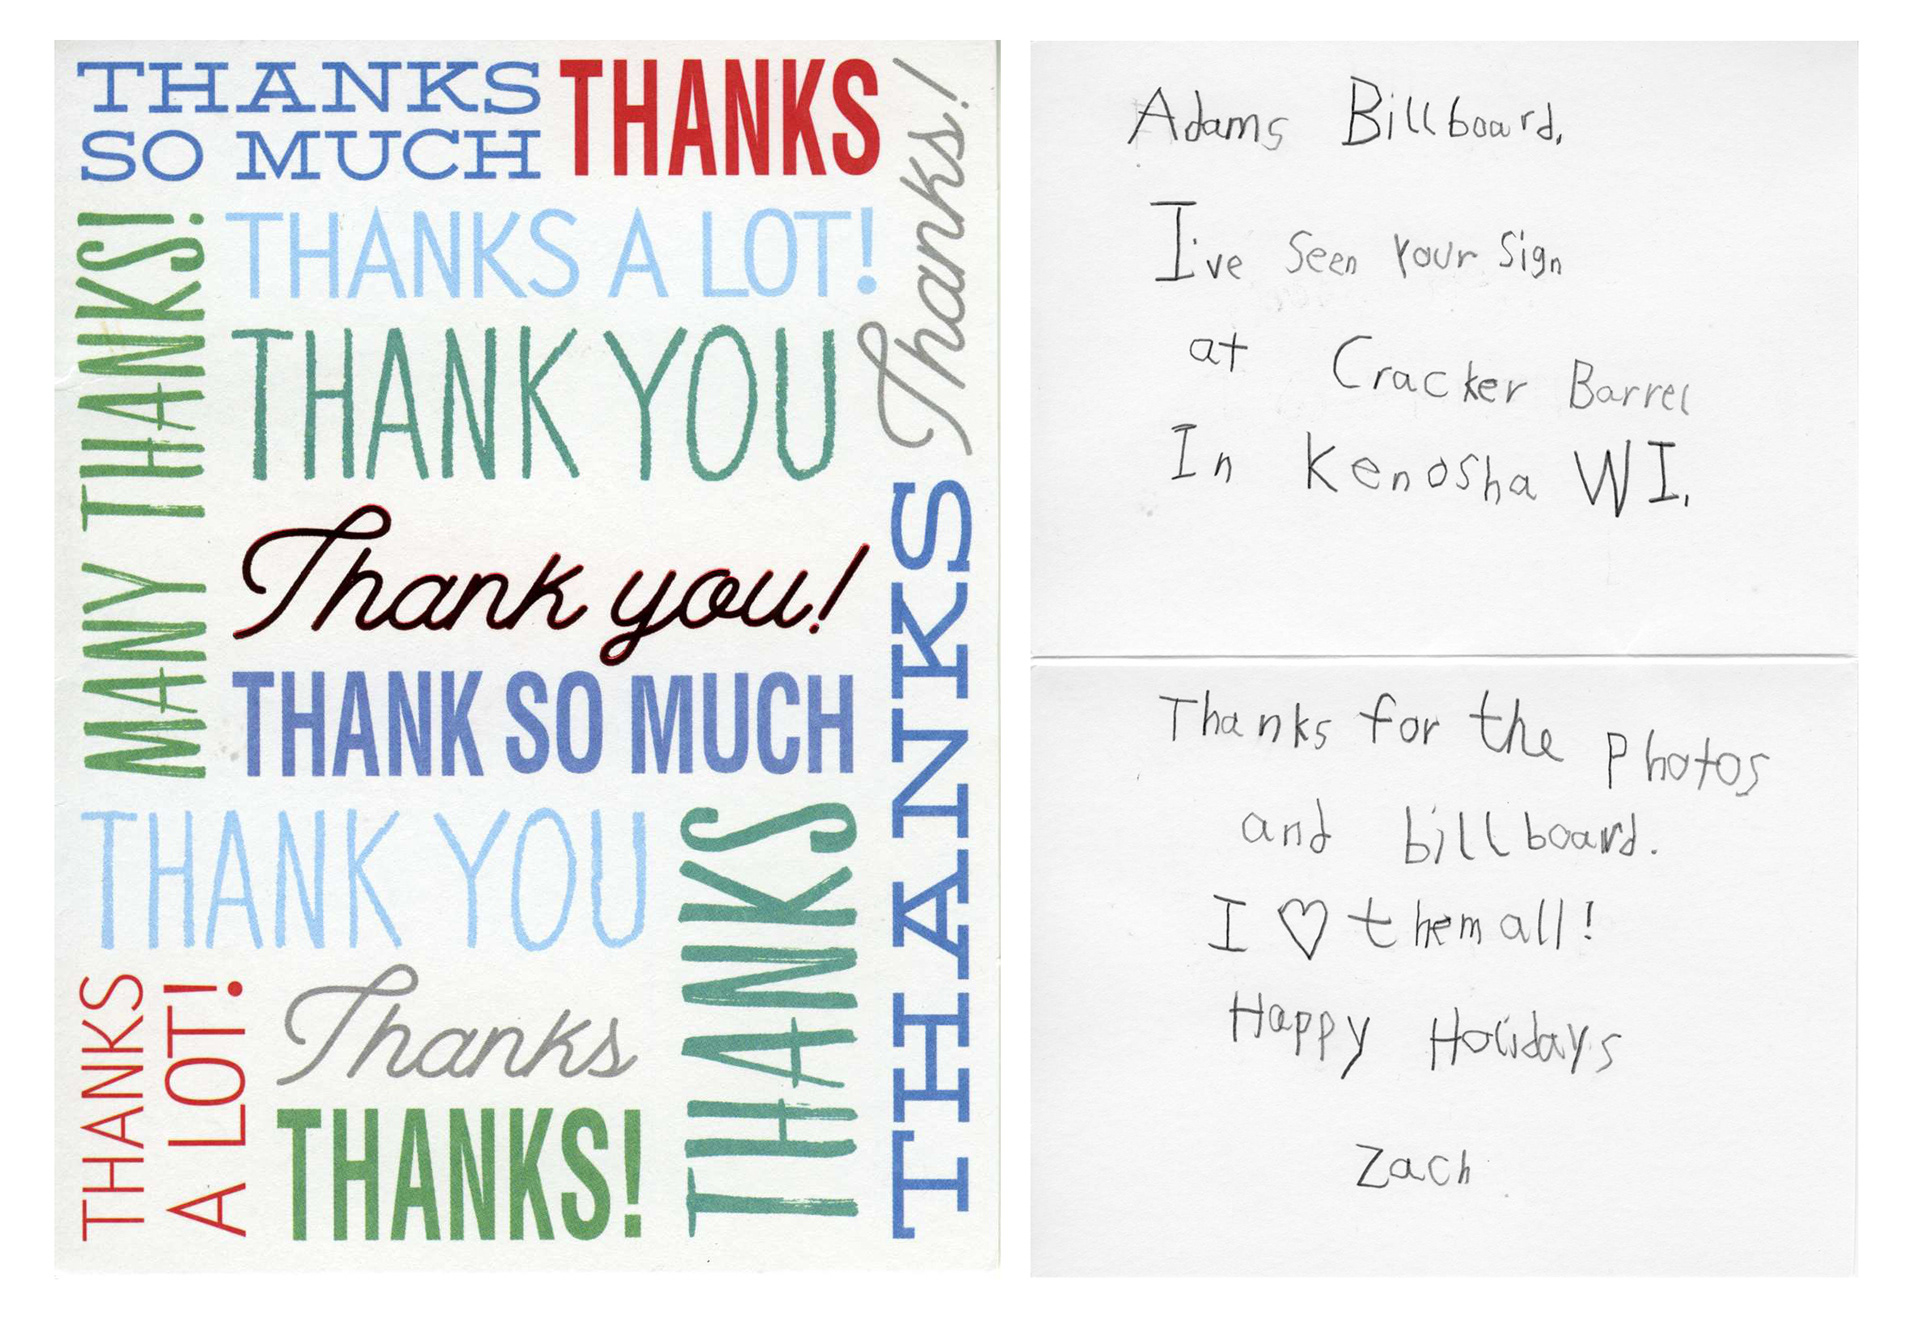 THANKS
SO MUCH
THANKS
Thanks!
MANY THANKS!
THANKS A LOT!
THANK YOU
Thank you!
THANK SO MUCH
THANKS
THANK YOU
THANKS
THANKS
A LOT!
Thanks
THANKS!
Adams Billboard,
I've Seen Your Sign
at Cracker Barrel
In Kenosha WI.
Thanks for the Photos
and billboard.
I ♡ them all!
Happy Holidays
Zach